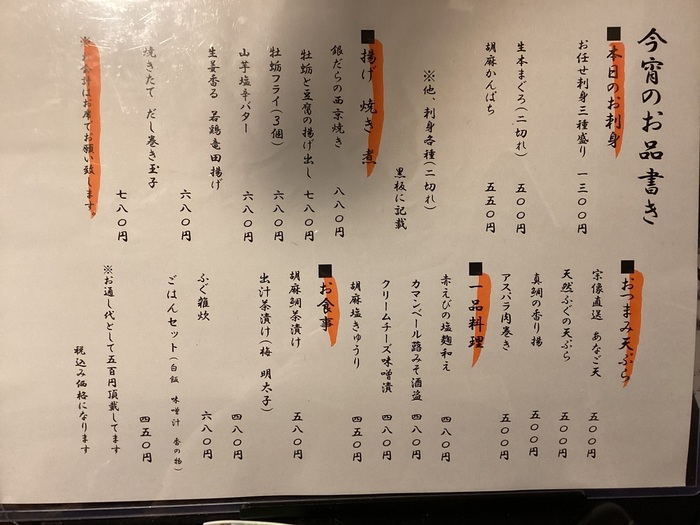 今宵のお品書き
■本日のお刺身
お任せ刺身三種盛り 一三〇〇円
生本まぐろ(二切れ) 五〇〇円
胡麻かんぱち 五五〇円
※他、刺身各種(二切れ)
黒板に記載
■揚げ 焼き 煮
銀だらの西京焼き 八八〇円
牡蛎と豆腐の揚げ出し 七八〇円
牡蛎フライ(3個) 六八〇円
山芋塩辛バター 六八〇円
生姜香る 若鶏竜田揚げ
六八〇円
焼きたて だし巻き玉子
七八〇円
※お会計はお席でお願い致します。
■おつまみ天ぷら
宗像直送 あなご天 五〇〇円
天然ふぐの天ぷら 五〇〇円
真鯛の香り揚 五〇〇円
アスパラ肉巻き 五〇〇円
■一品料理
赤えびの塩麹和え 四八〇円
カマンベール蕗みそ酒盗 四八〇円
クリームチーズ味噌漬 四八〇円
胡麻塩きゅうり 四五〇円
■お食事
胡麻鯛茶漬け 五八〇円
出汁茶漬け(梅 明太子)
四八〇円
ふぐ雑炊 六八〇円
ごはんセット(白飯 味噌汁 香の物)
四五〇円
※お通し代として五百円頂戴してます
税込み価格になります